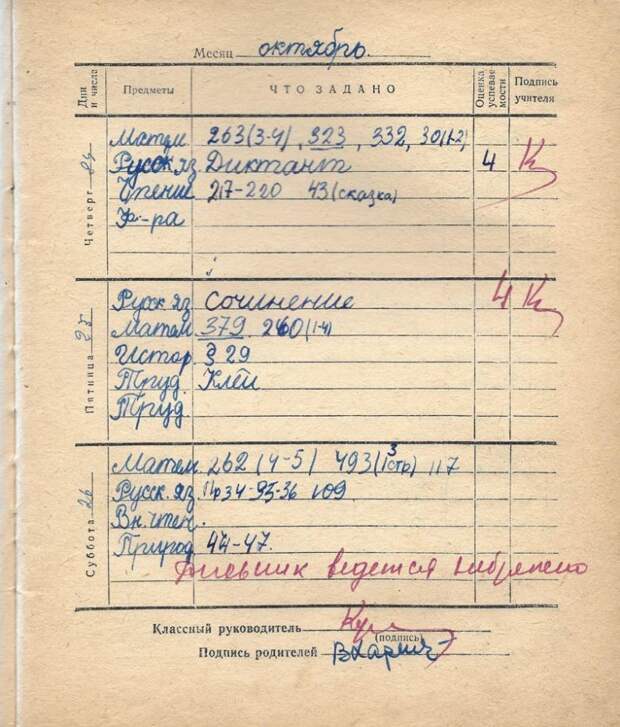 Месяц октябрь.
Дни и числа Предметы ЧТО ЗАДАНО Оценка успеваемости Подпись учителя
Четверг 24
Матем 263(3-4), 323, 332, 301(1-2)
Русск яз. Диктант 4
Чтение 217-220 43 (сказка)
Ф-ра
Пятница 25
Русск яз. Сочинение 4
Матем 379 260(1-4)
Истор. § 29
Труд. Клей
Труд.
Суббота 26
Матем. 262 (4-5) 493(1 3 стр) 117
Русск. яз. 109
Вн. чтен.
Природ 44-47.
Дневник ведется небрежно
Классный руководитель
(подпись)
Подпись родителей